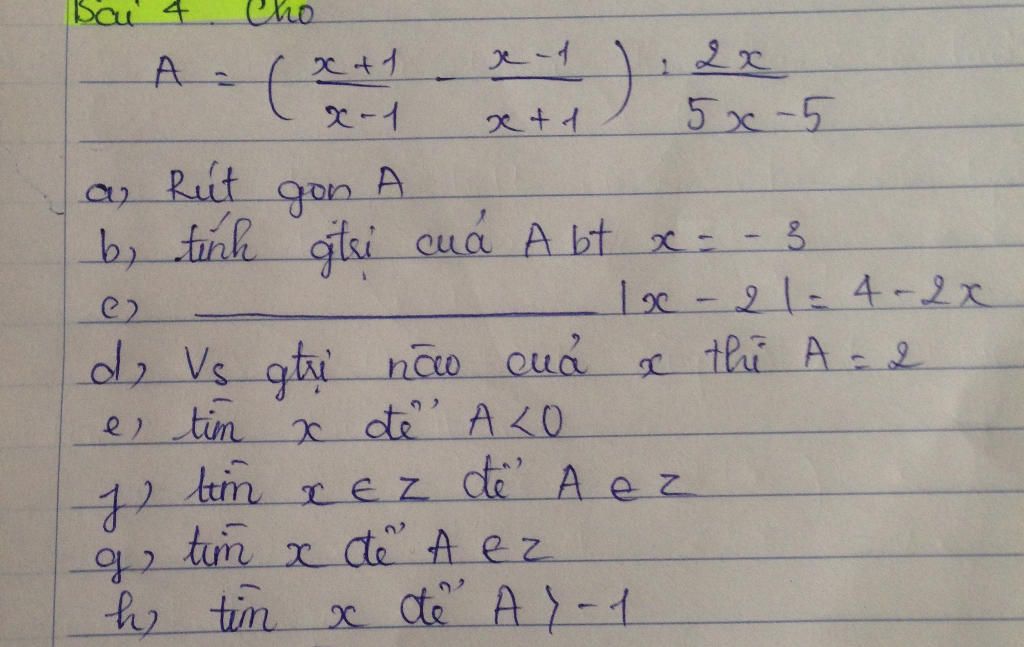 Bài 4. Cho
A = ( x+1 / x-1 - x-1 / x+1 ) : 2x / 5x-5
a, Rút gọn A
b, tính gtrị cuả A bt x = -3
c, ——— |x - 2| = 4 - 2x
d, Vs gtrị nào cuả x thì A = 2
e, tìm x để A < 0
f, tìm x ∈ Z để A ∈ Z
g, tìm x để A ∈ Z
h, tìm x để A > -1